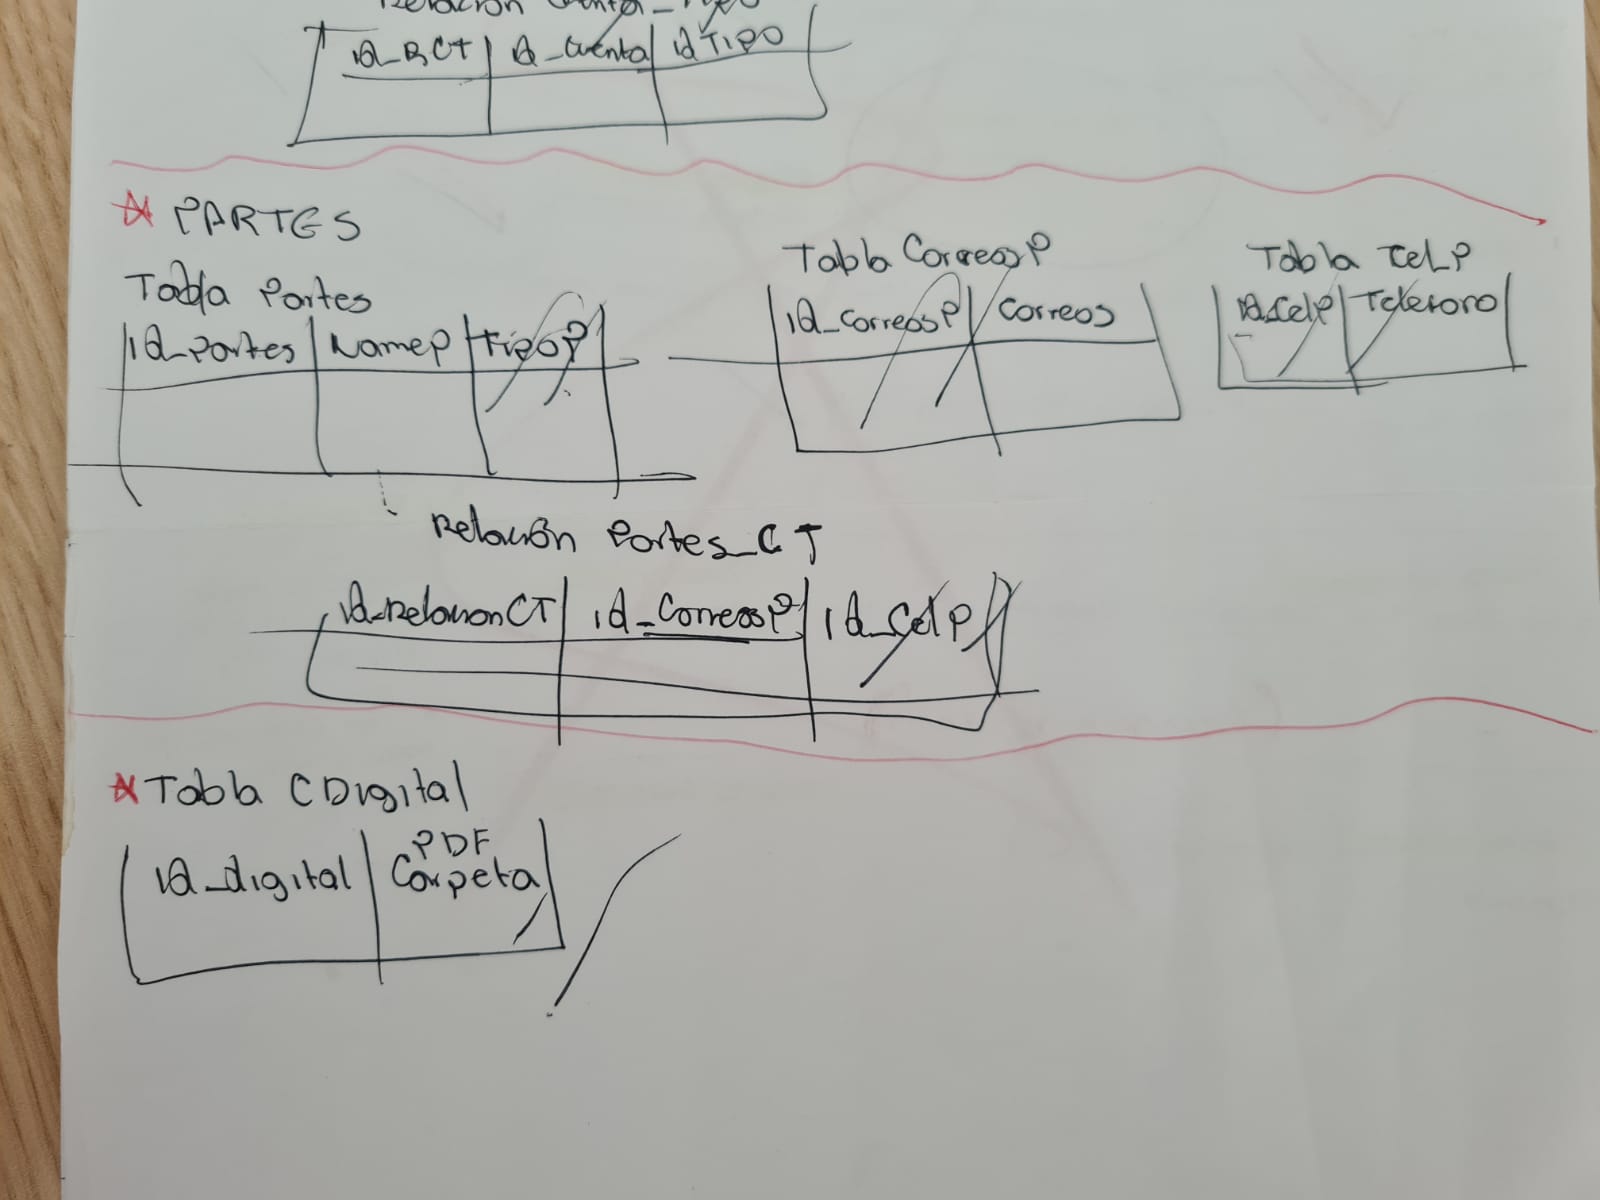 Relación Cuenta_Tipo
id_RCT id_Cuenta id TIPO
PARTES
Tabla Partes
id_Partes NameP TipoP
Tabla CorreosP
id_CorreosP Correos
Tabla CelP
id_CelP Telefono
Relación Partes_CT
id_RelacionCT id_CorreosP id_CelP
Tabla CDigital
id_digital PDF Carpeta